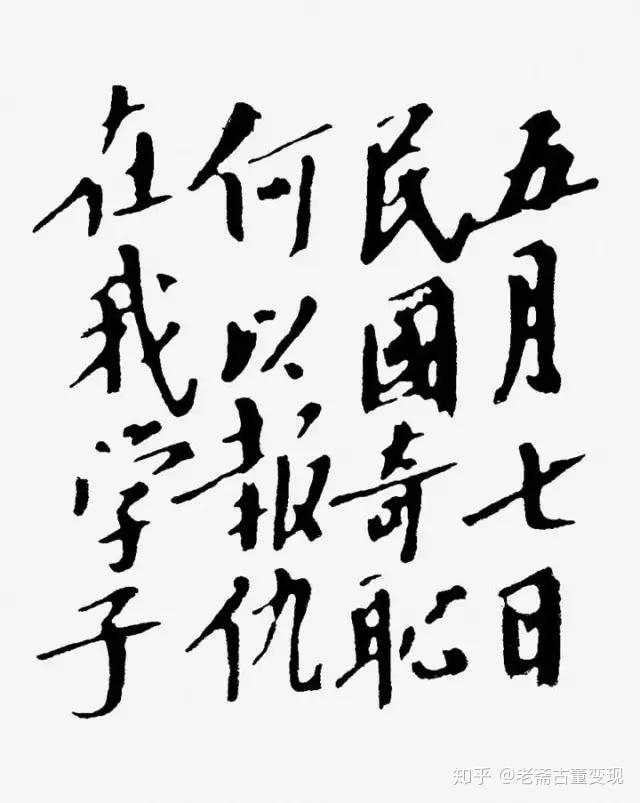 五月七日
民國奇恥
何以報仇
在我学子
知乎 @老斋古董变现